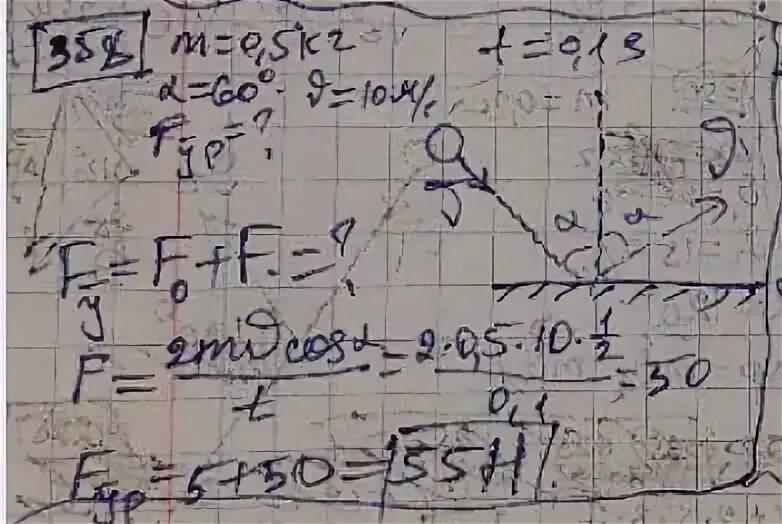 358 m=0,5кг t=0,1s
α=60° ϑ=10м/с
Fур=?
α α ϑ
ϑ
Fу=F₀+F.=?
F=2mϑcosα/t=2·0,5·10·1/2/0,1=50
Fур=5+50=55H